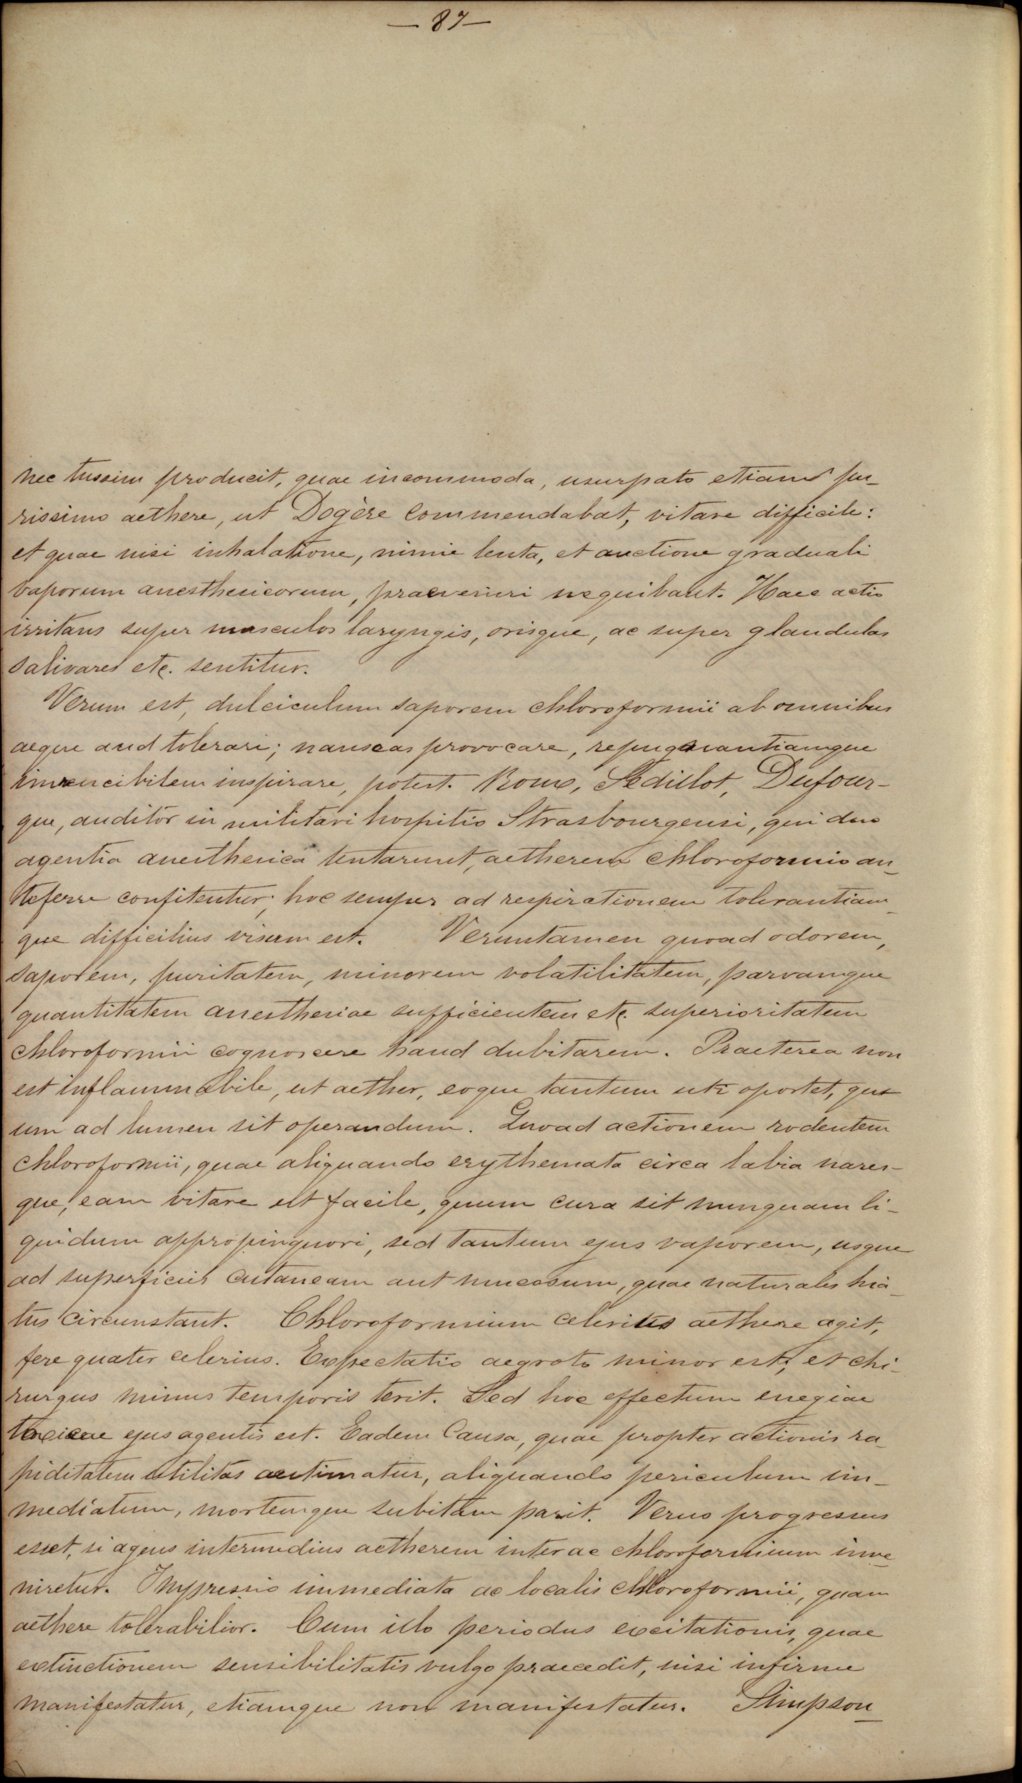 — 87 —
nec tussim producit, quae incommoda, usurpato etiam pu-
rissimo aethere, ut Dogère commendabat, vitare difficile:
et quae nisi inhalatione, nimie lenta, et auctione graduali
vaporum anesthesicorum, praeveniri nequibant. Haec actio
irritans super musculos laryngis, orisque, ac super glandulas
salivares etc. sentitur.
Verum est, dulciculum saporem chloroformii ab omnibus
aeque aud tolerari; nauseas provocare, repugnantiamque
invencibilem inspirare, potest. Roux, Sédillot, Dufour-
que, auditor in militari hospitio Strasbourgensi, qui duo
agentia anesthesica tentarunt, aetherem chloroformio an-
teferre confitentur; hoc semper ad respirationem tolerantiam-
que difficilius visum est. Veruntamen quoad odorem,
saporem, puritatem, minorem volatilitatem, parvamque
quantitatem anesthesiae sufficientem etc. superioritatem
chloroformii cognoscere haud dubitarem. Praeterea non
est inflammabile, ut aether, eoque tantum uti oportet, qu
um ad lumen sit operandum. Quoad actionem rodentem
chloroformii, quae aliquando erythemata circa labia nares-
que, eam vitare est facile, quum cura sit nunquam li-
quidum appropinquari, sed tantum ejus vaporem, usque
ad superficies cutaneam aut mucosum, quae naturales hia-
tus circunstant. Chloroformium celerius aethere agit,
fere quater celerius. Expectatio aegroto minor est; et chi-
rurgus minus temporis terit. Sed hoc effectum enegiae
toxicae ejus agentis est. Eadem causa, quae propter actionis ra-
piditatem utilitas aestimatur, aliquando periculum im-
mediatum, mortemque subitam parit. Verus progressus
esset, si agens intermedius aetherem inter ac chloroformium inve-
niretur. Impressio immediata ac localis chloroformii, quam
aethere tolerabilior. Cum isto periodus excitationis, quae
extinctionem sensibilitatis vulgo praecedit, nisi infirme
manifestatur, etiamque non manifestatur. Simpson